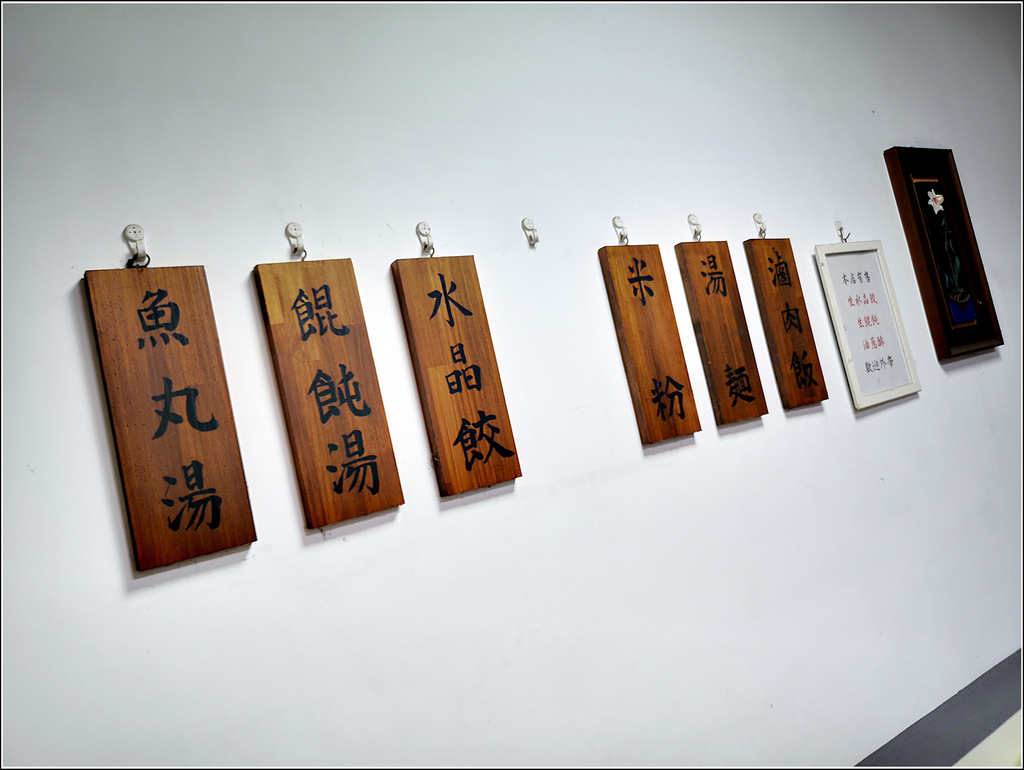 魚丸湯
餛飩湯
水晶餃
米粉
湯麵
滷肉飯
本店有售
生水晶餃
生餛飩
油蔥酥
歡迎外帶